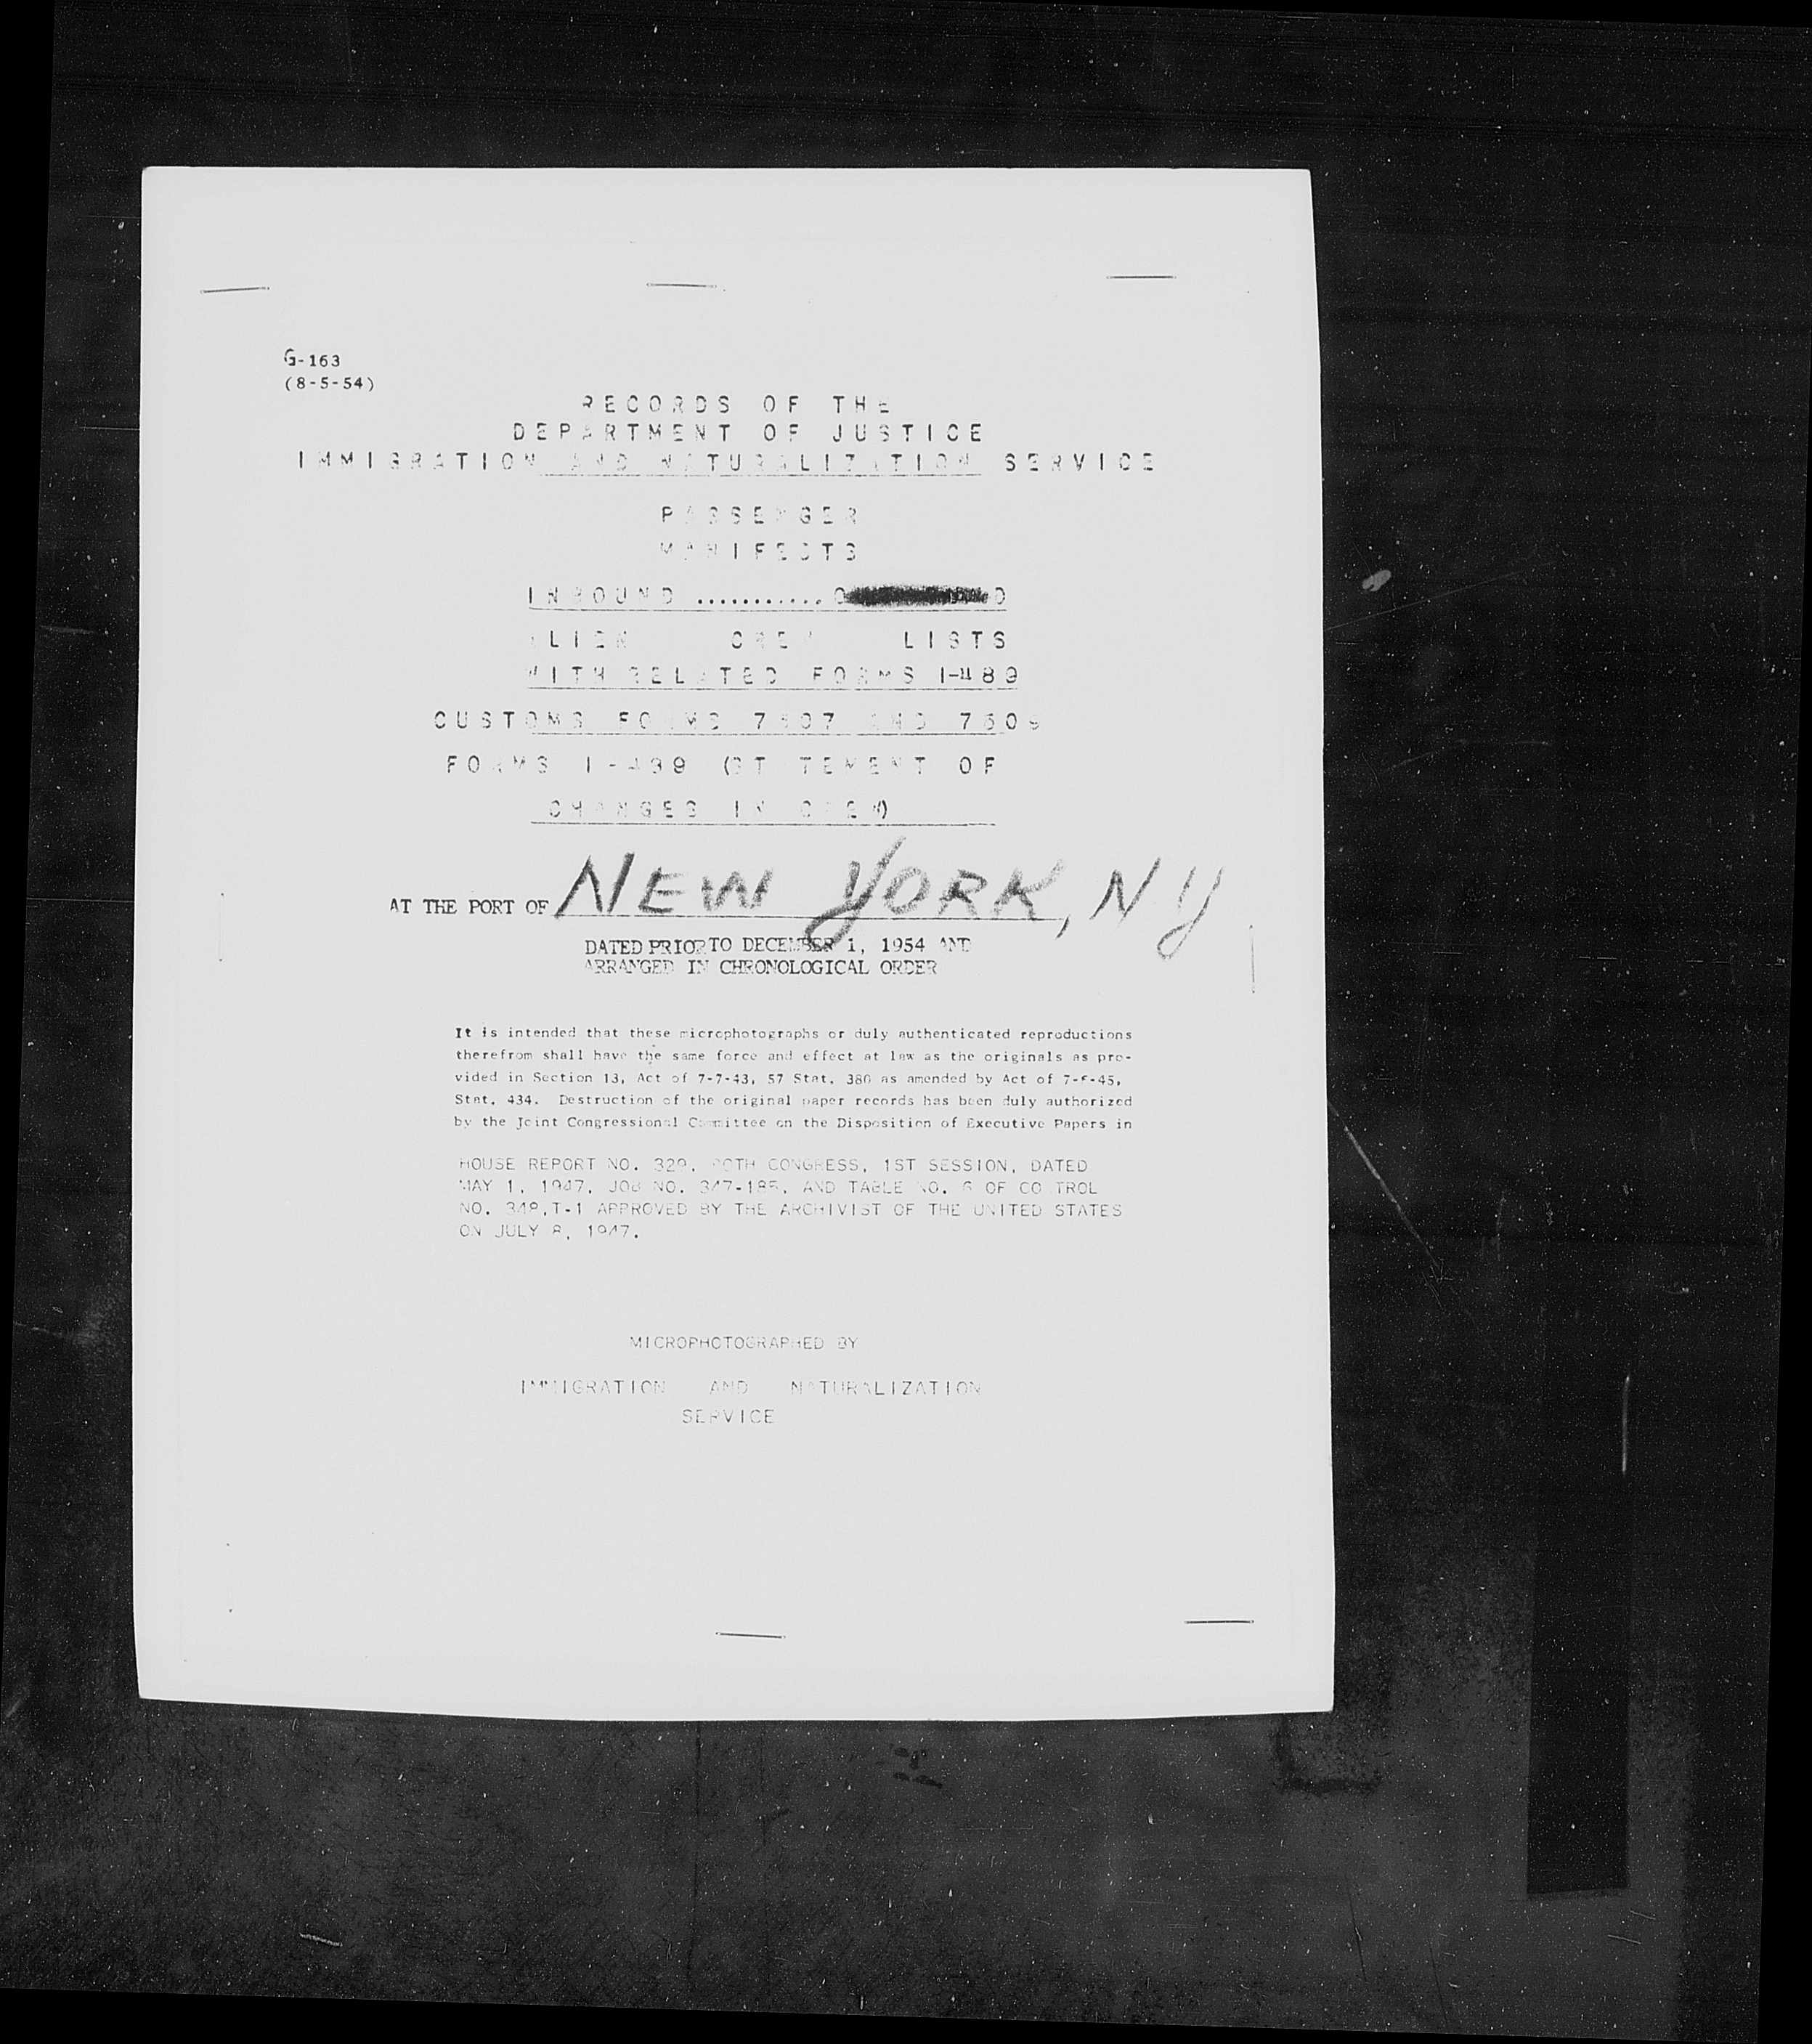 G-163
(8-5-54)
RECORDS OF THE
DEPARTMENT OF JUSTICE
IMMIGRATION AND NATURALIZATION SERVICE
PASSENGER
MANIFESTS
INBOUND ...........
ALIEN CREW LISTS
WITH RELATED FORMS I-489
CUSTOMS FORMS 7507 AND
FORMS I-489 (STATEMENT OF
CHANGES IN CREW)
AT THE PORT OF NEW YORK, NY
DATED PRIOR TO DECEMBER 1, 1954 AND
ARRANGED IN CHRONOLOGICAL ORDER
It is intended that these microphotographs or duly authenticated reproductions
therefrom shall have the same force and effect at law as the originals as pro-
vided in Section 13, Act of 7-7-43, 57 Stat. 380 as amended by Act of
Stat. 434. Destruction of the original paper records has been duly authorized
by the Joint Congressional Committee on the Disposition of Executive Papers in
HOUSE REPORT NO. 329, 80TH CONGRESS, 1ST SESSION, DATED
MAY 1, 1947, JOB NO. 347-185, AND TABLE NO. 6 OF CO TROL
NO. 348,T-1 APPROVED BY THE ARCHIVIST OF THE UNITED STATES
ON JULY 8, 1947.
MICROPHOTOGRAPHED BY
IMMIGRATION AND NATURALIZATION
SERVICE